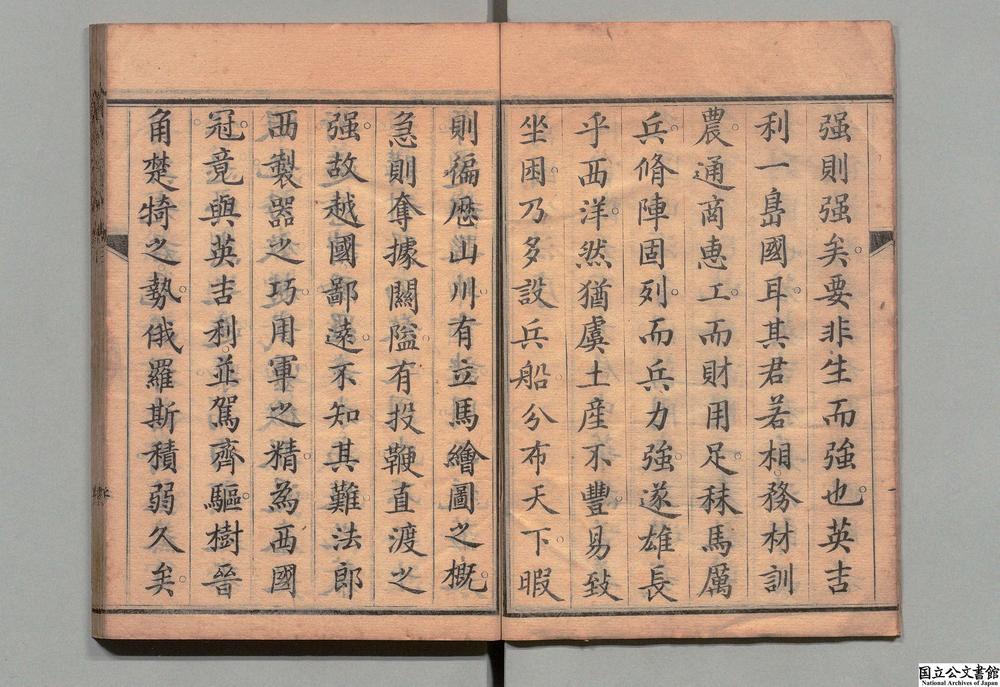 强則强矣。要非生而強也。英吉
利一㠀國耳。其君若相。務材訓
農。通商惠工。而財用足。秣馬厲
兵。脩陣固列。而兵力強。遂雄長
乎西洋。然猶虞土産不豐。易致
坐困。乃多設兵船。分布天下。暇
則徧歷山川。有立馬繪圖之概。
急則奪據關隘。有投鞭直渡之
强。故越國鄙遠。不知其難。法郎
西製器之巧。用軍之精。爲西國
冠。竟與英吉利。並駕齊驅。樹晉
角楚犄之勢。俄羅斯積弱久矣。
国立公文書館
National Archives of Japan